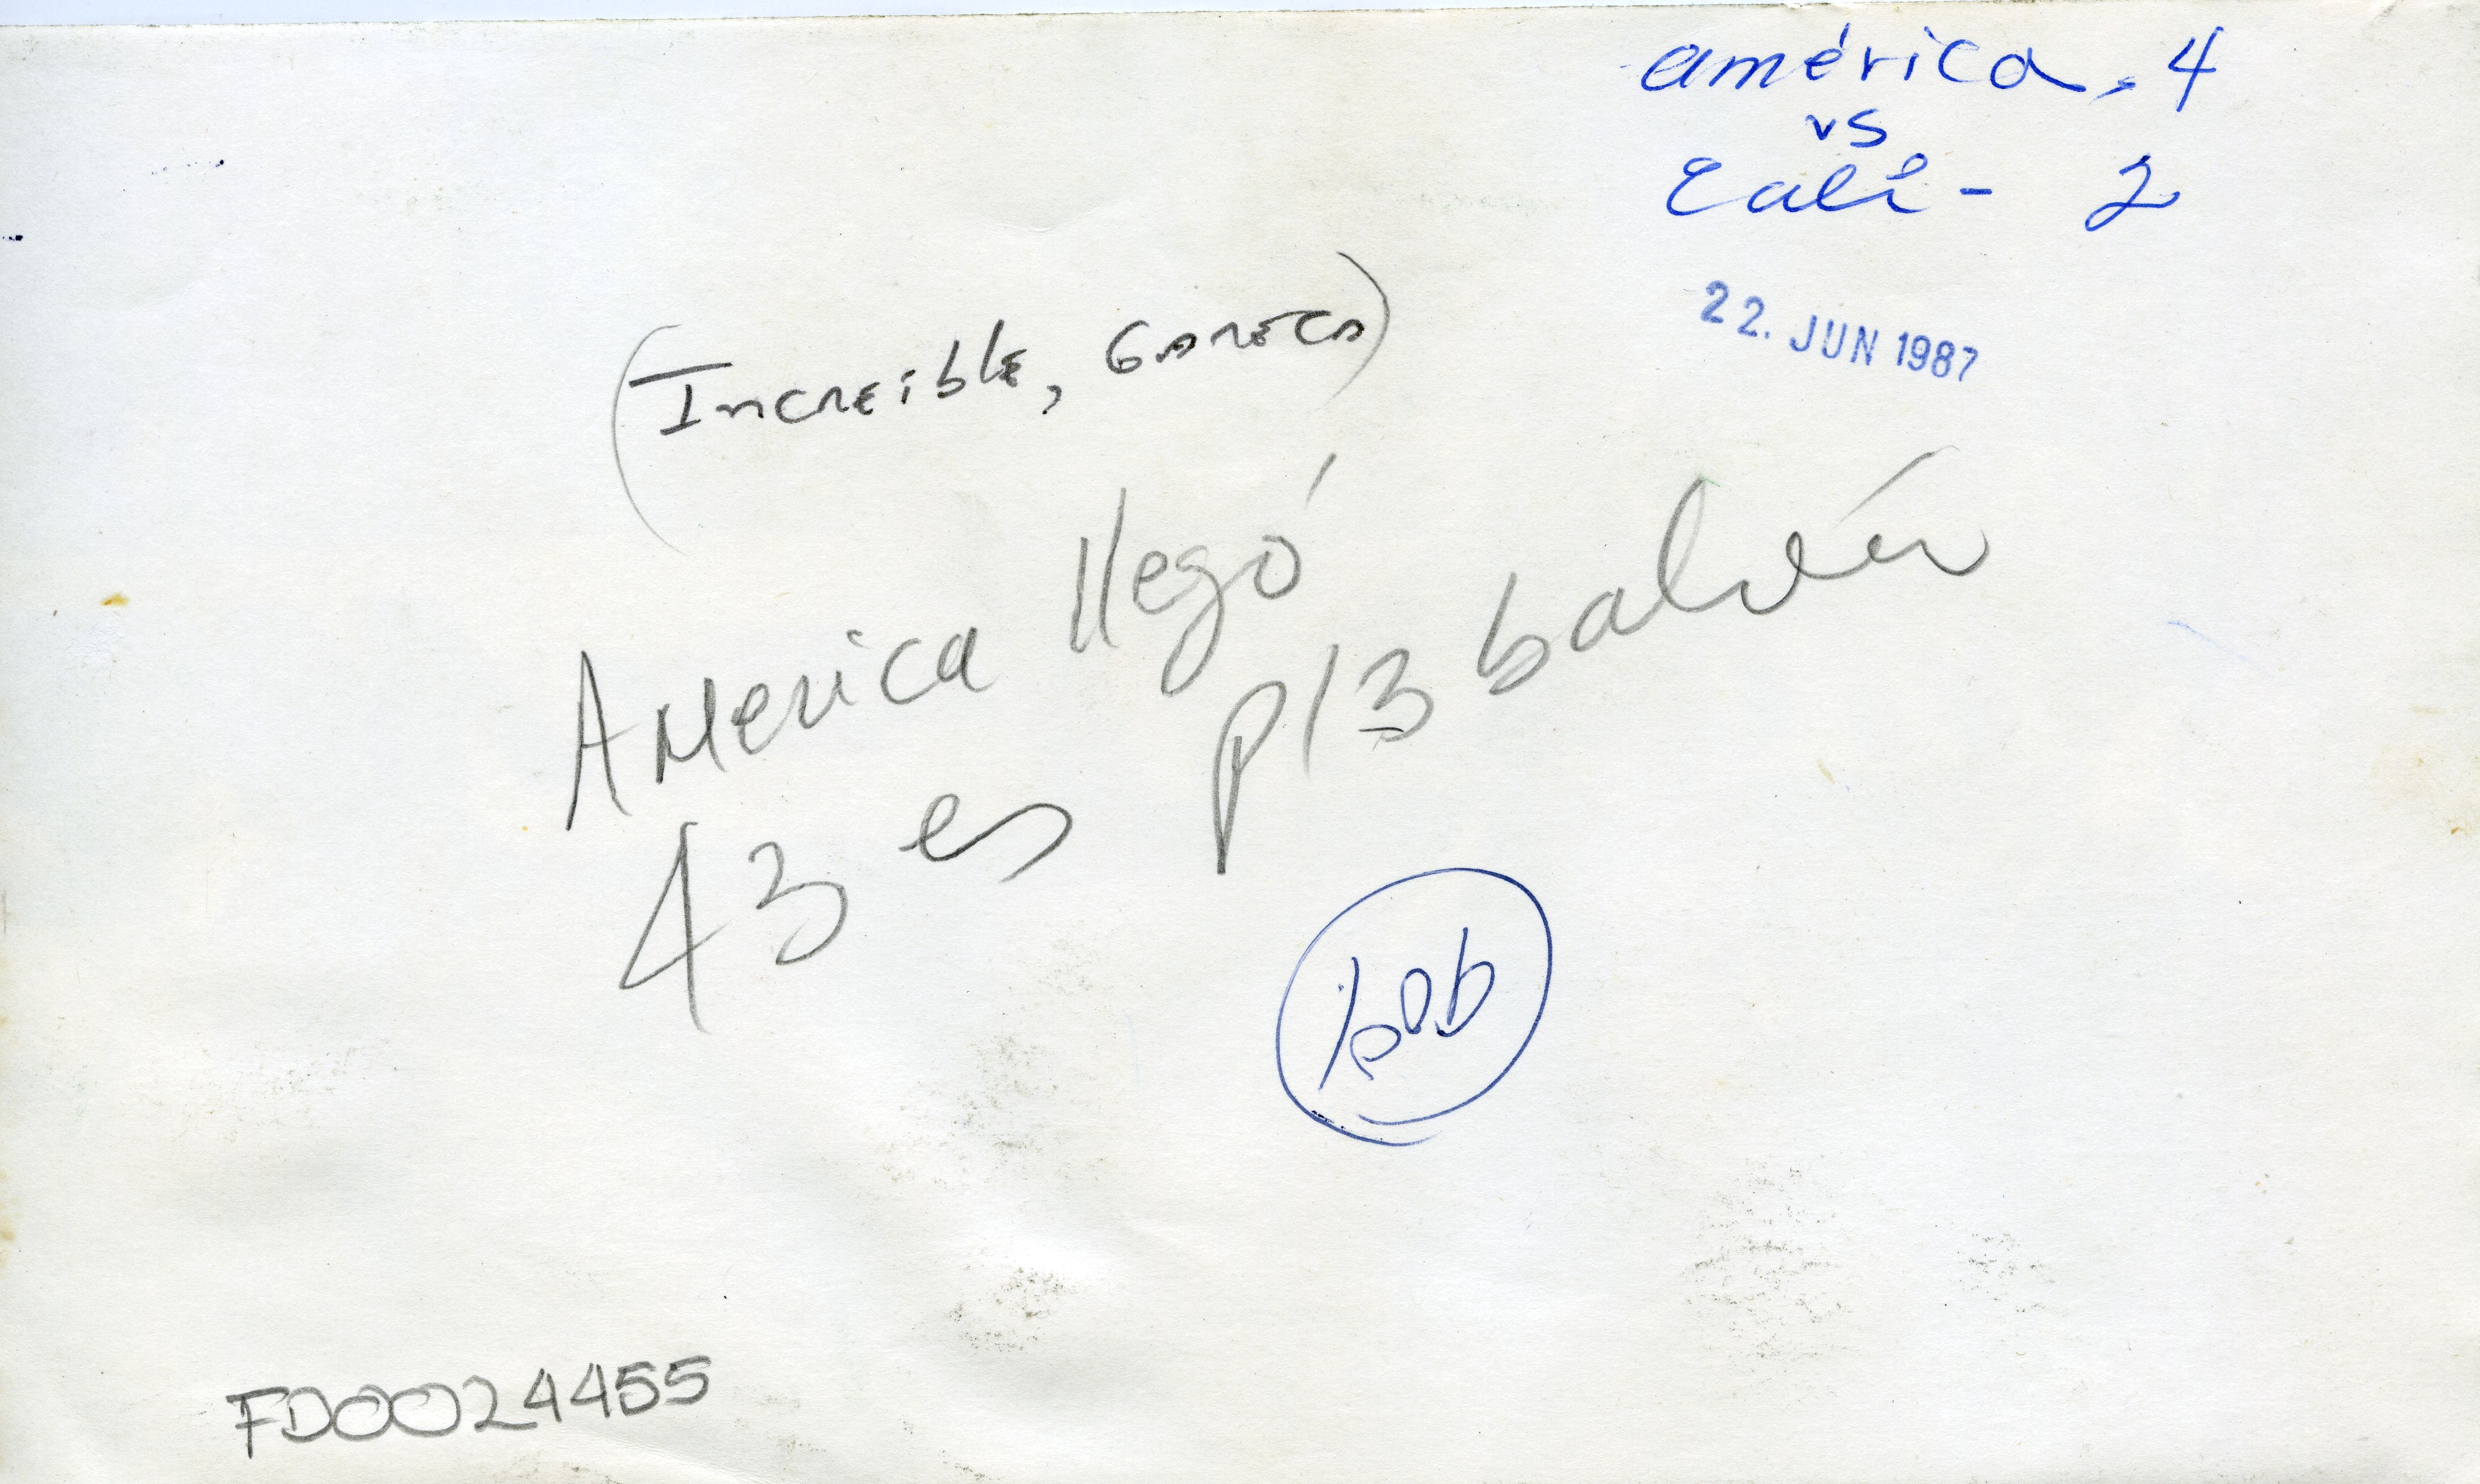 américa, 4
vs
Cali - 2
22. JUN 1987
(Increible, Gareca)
America llegó
43 es p/3 balvín
bob
FD0024455